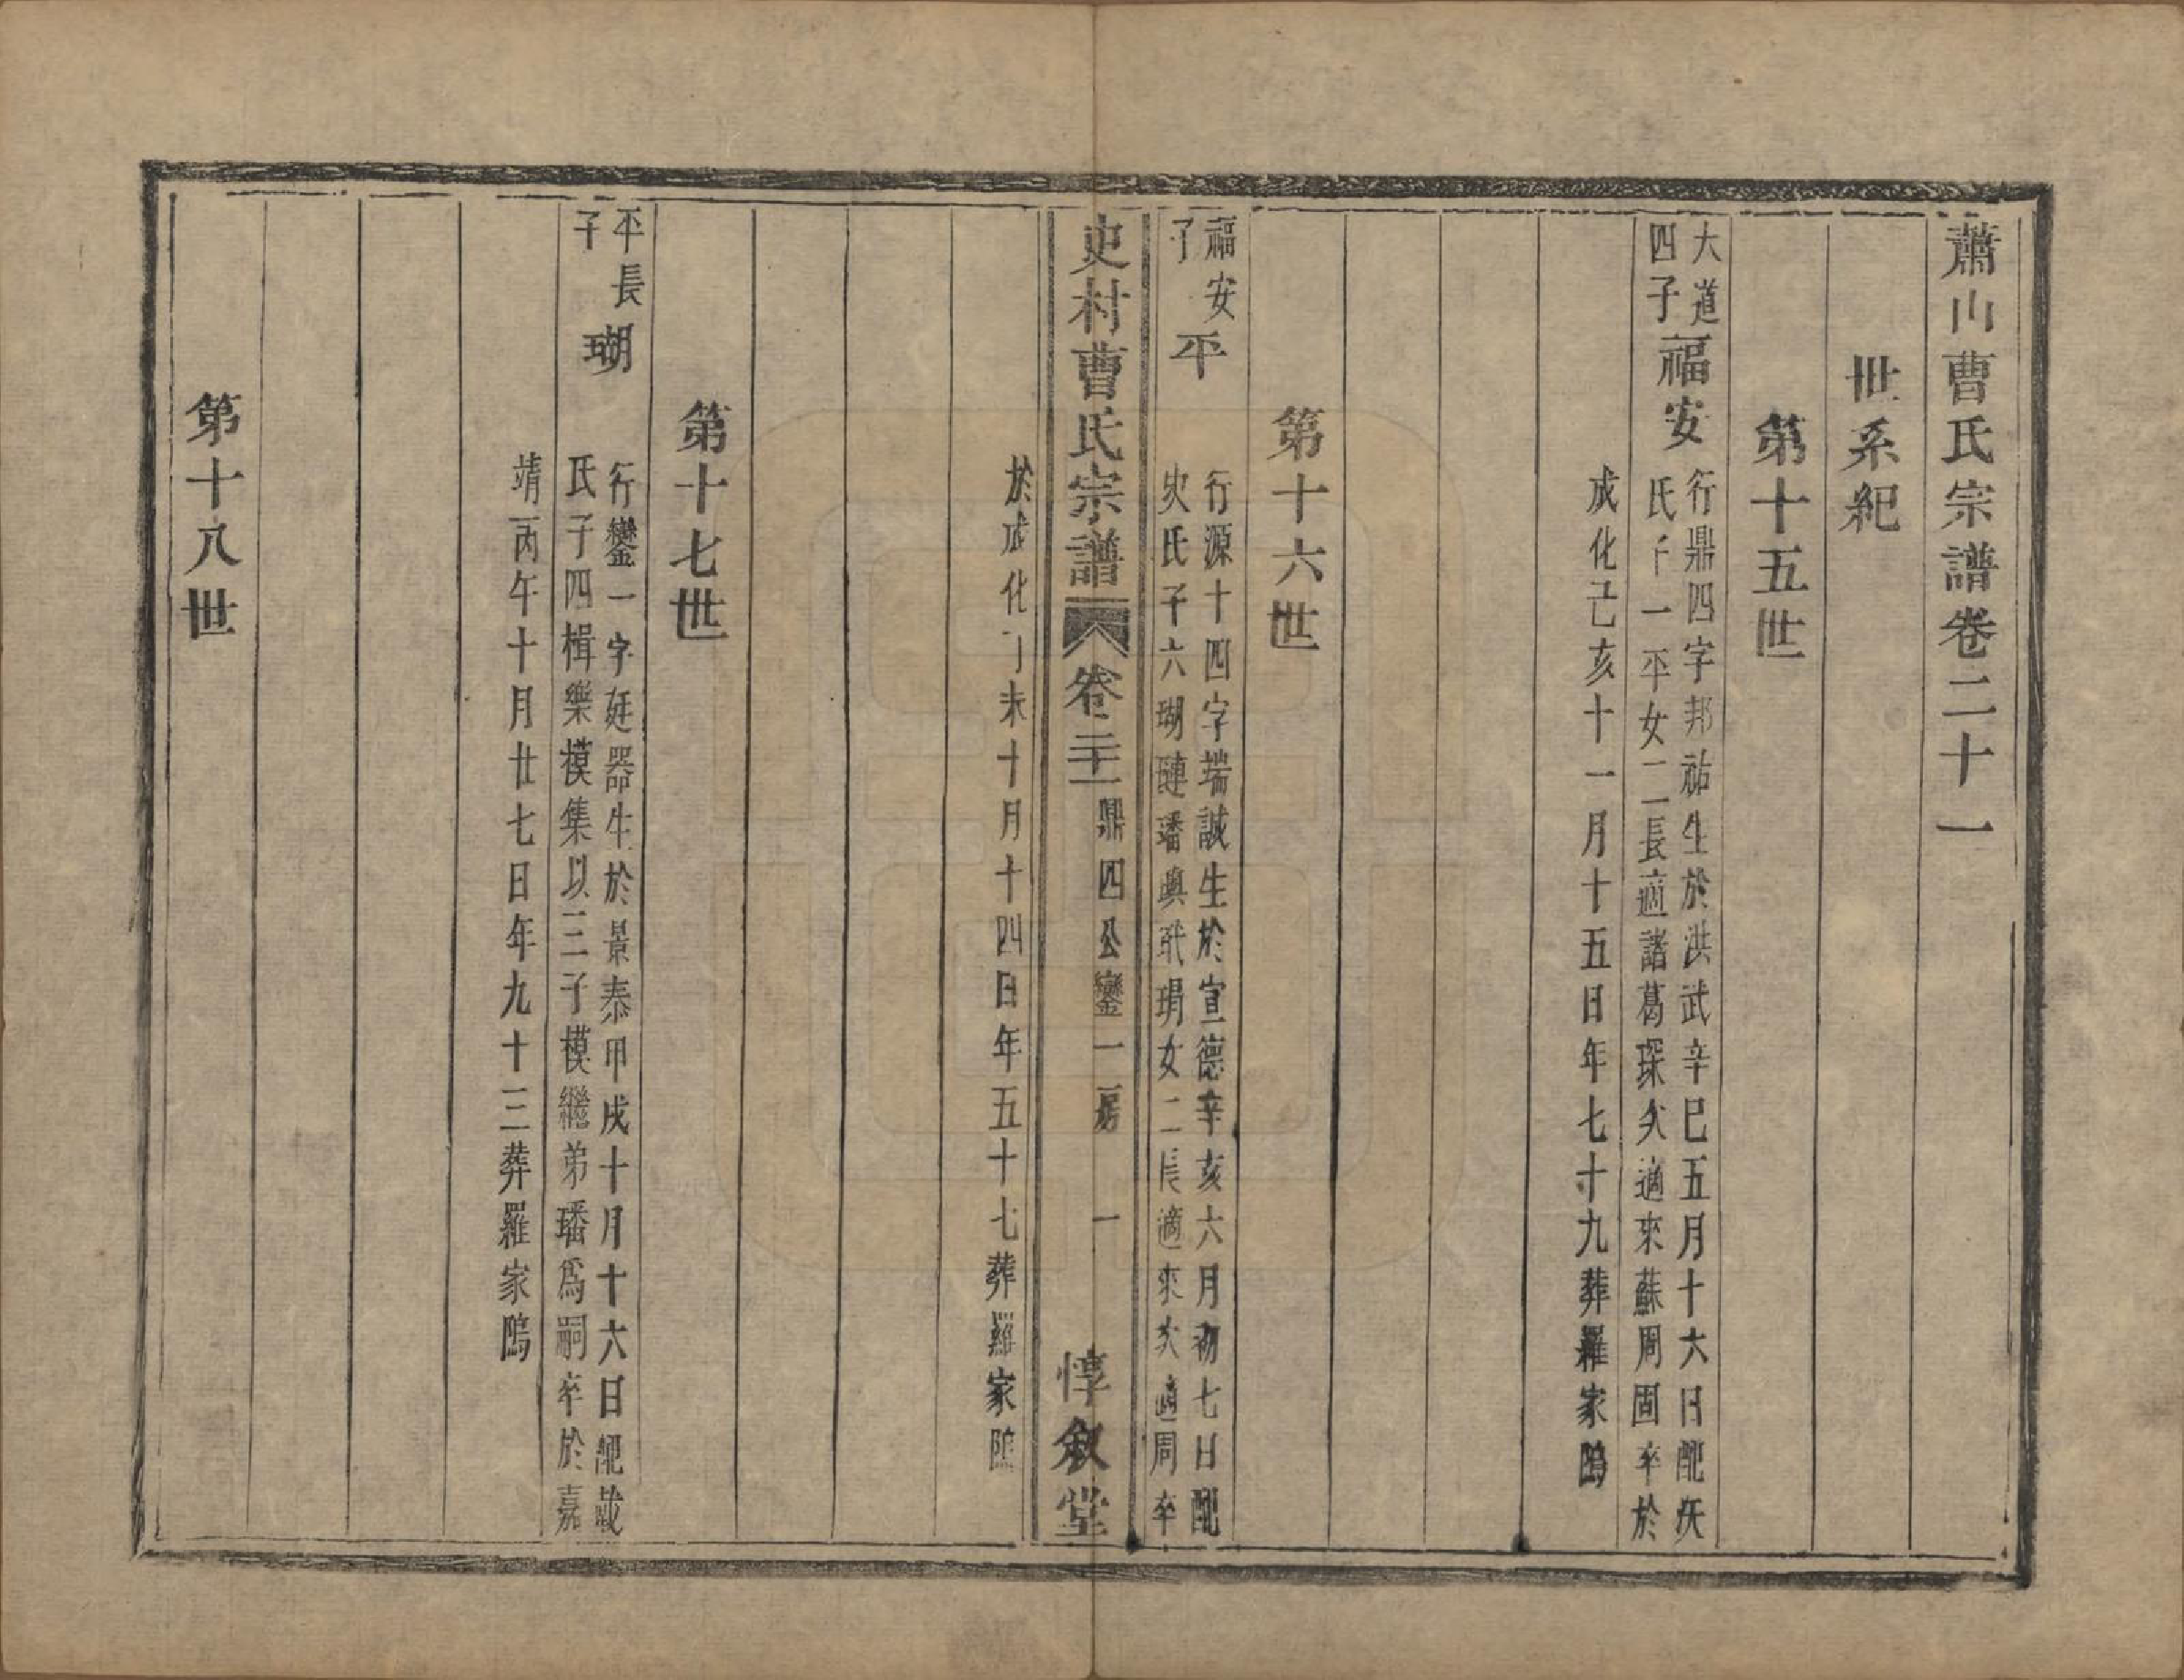 蕭山曹氏宗譜卷二十一
世系紀
第十五世
大道
四子
福安
行鼎四字邦祐生於洪武辛巳五月十六日配矢
氏子一平女二長適諸葛琛次適來蘇周固卒於
成化己亥十一月十五日年七十九葬羅家隖
第十六世
福安
子
平
行源十四字端誠生於宣德辛亥六月初七日配
史氏子六瑚璉璠璵玳瑁女二長適來次適周卒
於成化丁未十月十四日年五十七葬羅家隖
史村曹氏宗譜
卷二十一
鼎四公鑾一房
一
惇敘堂
第十七世
平長
子
瑚
行鑾一字廷器生於景泰甲戌十月十六日配戴
氏子四楫樂模集以三子模繼弟璠爲嗣卒於嘉
靖丙午十月廿七日年九十三葬羅家隖
第十八世